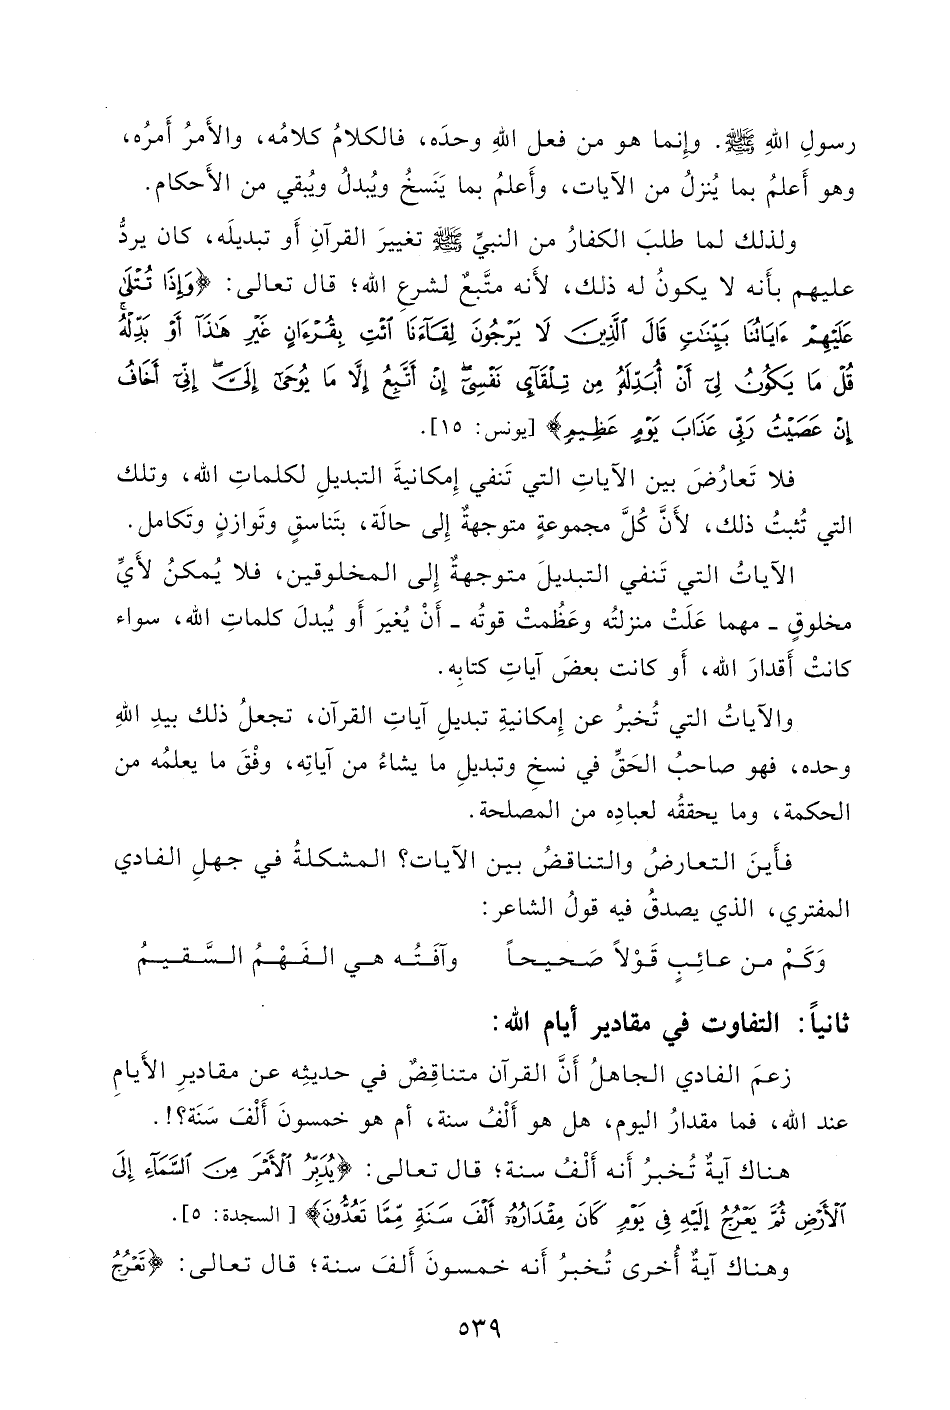 رسولِ اللهِ ﷺ. وإِنما هو من فعل اللهِ وحدَه، فالكلامُ كلامُه، والأَمرُ أَمرُه،
وهو أَعلمُ بما يُنزلُ من الآيات، وأَعلمُ بما يَنَسخُ ويُبدلُ ويُبقي من الأَحكام.
ولذلك لما طلبَ الكفارُ من النبيِّ ﷺ تغييرَ القرآنِ أَو تبديلَه، كان يردُّ
عليهم بأَنه لا يكونُ له ذلك، لأَنه متَّبعٌ لشرعِ الله؛ قال تعالى: ﴿وَإِذَا تُتْلَىٰ
عَلَيْهِمْ ءَايَاتُنَا بَيِّنَٰتٍ قَالَ ٱلَّذِينَ لَا يَرْجُونَ لِقَآءَنَا ٱئْتِ بِقُرْءَانٍ غَيْرِ هَٰذَآ أَوْ بَدِّلْهُۚ
قُلْ مَا يَكُونُ لِىٓ أَنْ أُبَدِّلَهُۥ مِن تِلْقَآئِ نَفْسِىٓۖ إِنْ أَتَّبِعُ إِلَّا مَا يُوحَىٰٓ إِلَىَّۖ إِنِّىٓ أَخَافُ
إِنْ عَصَيْتُ رَبِّى عَذَابَ يَوْمٍ عَظِيمٍ﴾ [يونس: ١٥].
فلا تَعارُضَ بين الآياتِ التي تَنفي إِمكانيةَ التبديلِ لكلماتِ الله، وتلك
التي تُثبتُ ذلك، لأَنَّ كُلَّ مجموعةٍ متوجهةٌ إِلى حالَة، بتَناسقٍ وتَوازنٍ وتَكامل.
الآياتُ التي تَنفي التبديلَ متوجهةٌ إِلى المخلوقين، فلا يُمكنُ لأَيِّ
مخلوقٍ ـ مهما عَلَتْ منزلتُه وعَظُمتْ قوتُه ـ أَنْ يُغيرَ أَو يُبدلَ كلماتِ الله، سواء
كانتْ أَقدارَ الله، أَو كانت بعضَ آياتِ كتابِه.
والآياتُ التي تُخبرُ عن إِمكانيةِ تبديلِ آياتِ القرآن، تجعلُ ذلك بيدِ اللهِ
وحده، فهو صاحبُ الحَقِّ في نسخِ وتبديلِ ما يشاءُ من آياتِه، وفْقَ ما يعلمُه من
الحكمة، وما يحققُه لعبادِه من المصلحة.
فأَينَ التعارضُ والتناقضُ بين الآيات؟ المشكلةُ في جهلِ الفادي
المفتري، الذي يصدقُ فيه قولُ الشاعر:
وَكَمْ من عائِبٍ قَوْلاً صَحيحاً وآفَتُه هي الفَهْمُ السَّقيمُ
ثانياً: التفاوت في مقادير أيام الله:
زعمَ الفادي الجاهلُ أَنَّ القرآن متناقضٌ في حديثِه عن مقاديرِ الأَيامِ
عند الله، فما مقدارُ اليوم، هل هو أَلْفُ سنة، أم هو خمسونَ أَلْفَ سَنَة؟!.
هناك آيةٌ تُخبرُ أَنه أَلْفُ سنة؛ قال تعالى: ﴿يُدَبِّرُ ٱلْأَمْرَ مِنَ ٱلسَّمَآءِ إِلَى
ٱلْأَرْضِ ثُمَّ يَعْرُجُ إِلَيْهِ فِى يَوْمٍ كَانَ مِقْدَارُهُۥٓ أَلْفَ سَنَةٍ مِّمَّا تَعُدُّونَ﴾ [السجدة: ٥].
وهناك آيةٌ أُخرى تُخبرُ أَنه خمسونَ أَلفَ سنة؛ قال تعالى: ﴿تَعْرُجُ
٥٣٩